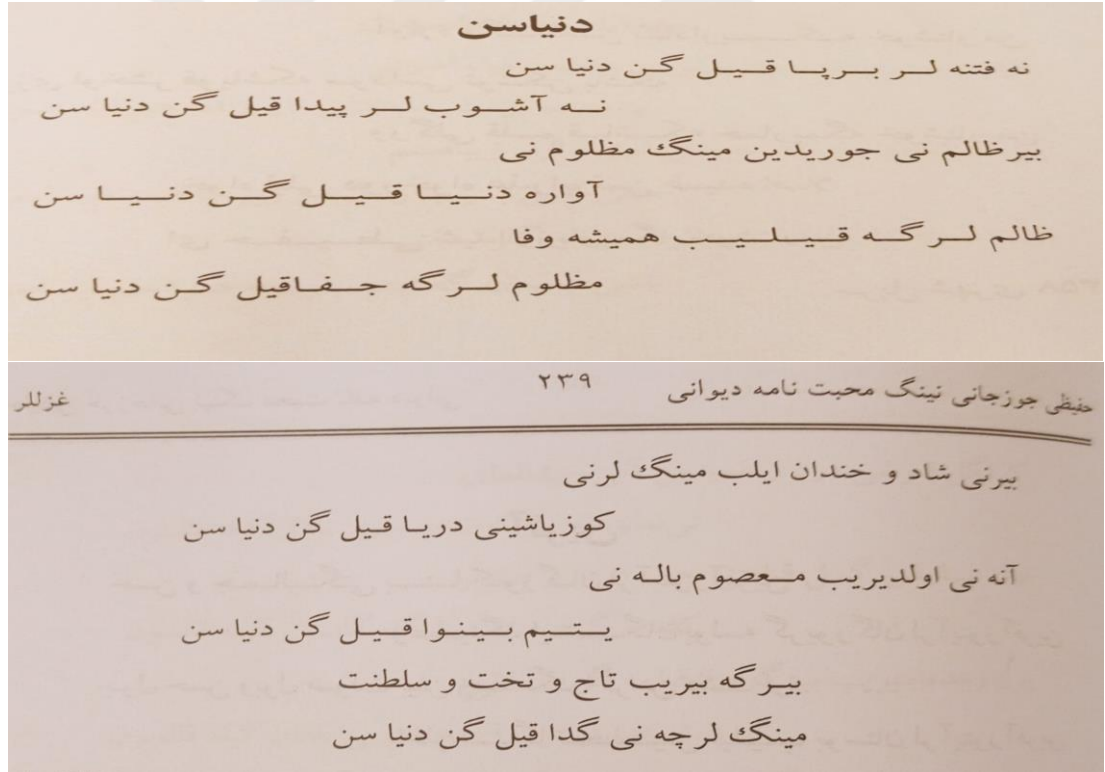 دنیاسن
نه فتنه لر برپا قیل گن دنیا سن
نه آشوب لر پیدا قیل گن دنیا سن
بیر ظالم نی جوریدین مینگ مظلوم نی
آواره دنیا قیل گن دنیا سن
ظالم لر گه قیلیب همیشه وفا
مظلوم لر گه جفاقیل گن دنیا سن
حفیظی جوزجانی نینگ محبت نامه دیوانی ۲۳۹ غزللر
بیرنی شاد و خندان ایلب مینگ لرنی
کوزیاشینی دریا قیل گن دنیا سن
آنه نی اولدیریب معصوم باله نی
یتیم بینوا قیل گن دنیا سن
بیر گه بیریب تاج و تخت و سلطنت
مینگ لر چه نی گدا قیل گن دنیا سن